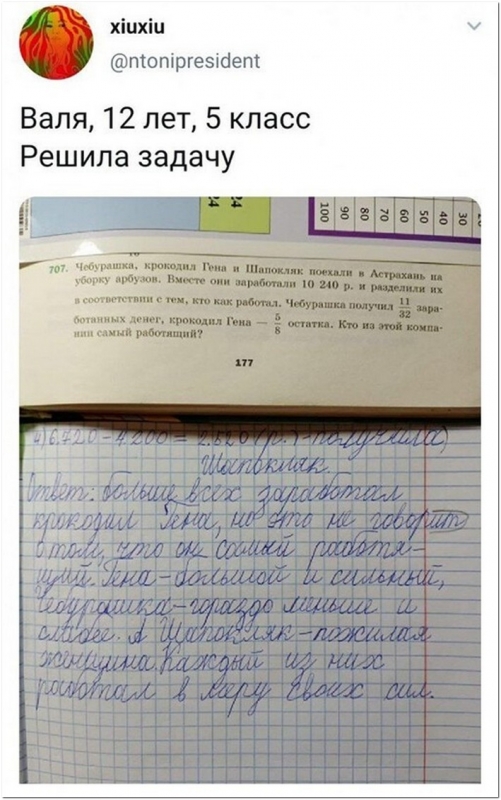 xiuxiu
@ntonipresident
Валя, 12 лет, 5 класс
Решила задачу
24
24
100
90
80
70
60
50
40
30
707. Чебурашка, крокодил Гена и Шапокляк поехали в Астрахань на
уборку арбузов. Вместе они заработали 10 240 р. и разделили их
в соответствии с тем, кто как работал. Чебурашка получил 11/32 зара-
ботанных денег, крокодил Гена — 5/8 остатка. Кто из этой компа-
нии самый работящий?
177
4) 6.720 - 4.200 = 2.520 (р.) - получила
Шапокляк.
Ответ: больше всех заработал
крокодил Гена, но это не говорит
о том, что он самый работя-
щий. Гена - большой и сильный,
Чебурашка - гораздо меньше и
слабее. А Шапокляк - пожилая
женщина. Каждый из них
работал в меру своих сил.